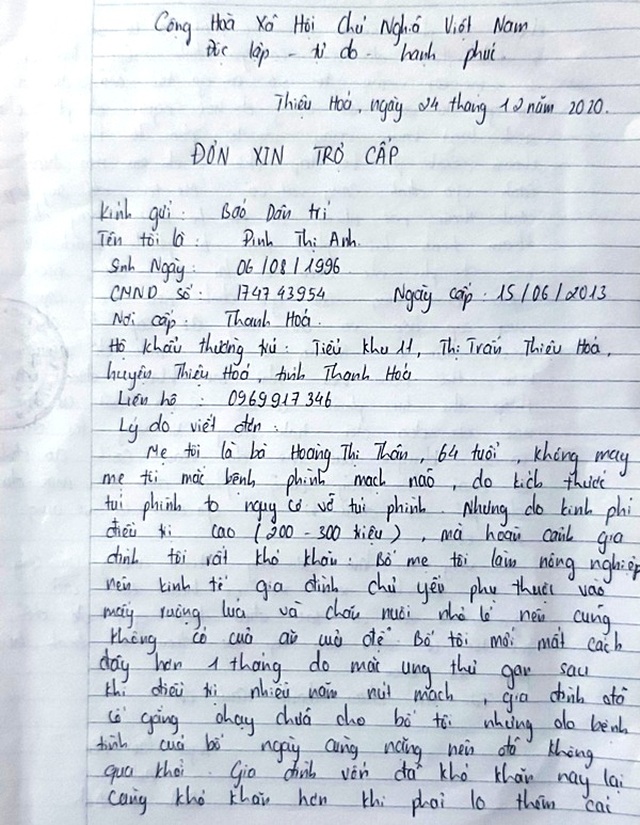 Cộng Hoà Xã Hội Chủ Nghĩa Việt Nam
Độc lập - tự do - hạnh phúc
Thiệu Hoá, ngày 24 tháng 12 năm 2020.
ĐƠN XIN TRỢ CẤP
Kính gửi : Báo Dân trí
Tên tôi là : Đinh Thị Anh.
Sinh Ngày : 06/08/1996
CMND số : 174743954 Ngày cấp : 15/06/2013
Nơi cấp : Thanh Hoá.
Hộ khẩu thường trú : Tiểu khu 11, Thị Trấn Thiệu Hoá,
huyện Thiệu Hoá, tỉnh Thanh Hoá
Liên hệ : 0969917346
Lý do viết đơn :
Mẹ tôi là bà Hoàng Thị Thân, 64 tuổi, không may
mẹ tôi mắc bệnh phình mạch não, do kích thước
túi phình to nguy cơ vỡ túi phình. Nhưng do kinh phí
điều trị cao (200 - 300 triệu), mà hoàn cảnh gia
đình tôi rất khó khăn. Bố mẹ tôi làm nông nghiệp
nên kinh tế gia đình chủ yếu phụ thuộc vào
mấy ruộng lúa và chăn nuôi nhỏ lẻ nên cũng
không có của ăn của để. Bố tôi mới mất cách
đây hơn 1 tháng do mắc ung thư gan sau
khi điều trị nhiều năm nút mạch, gia đình đã
cố gắng chạy chữa cho bố tôi nhưng do bệnh
tình của bố ngày càng nặng nên đã không
qua khỏi. Gia đình vốn đã khó khăn nay lại
càng khó khăn hơn khi phải lo thêm cái